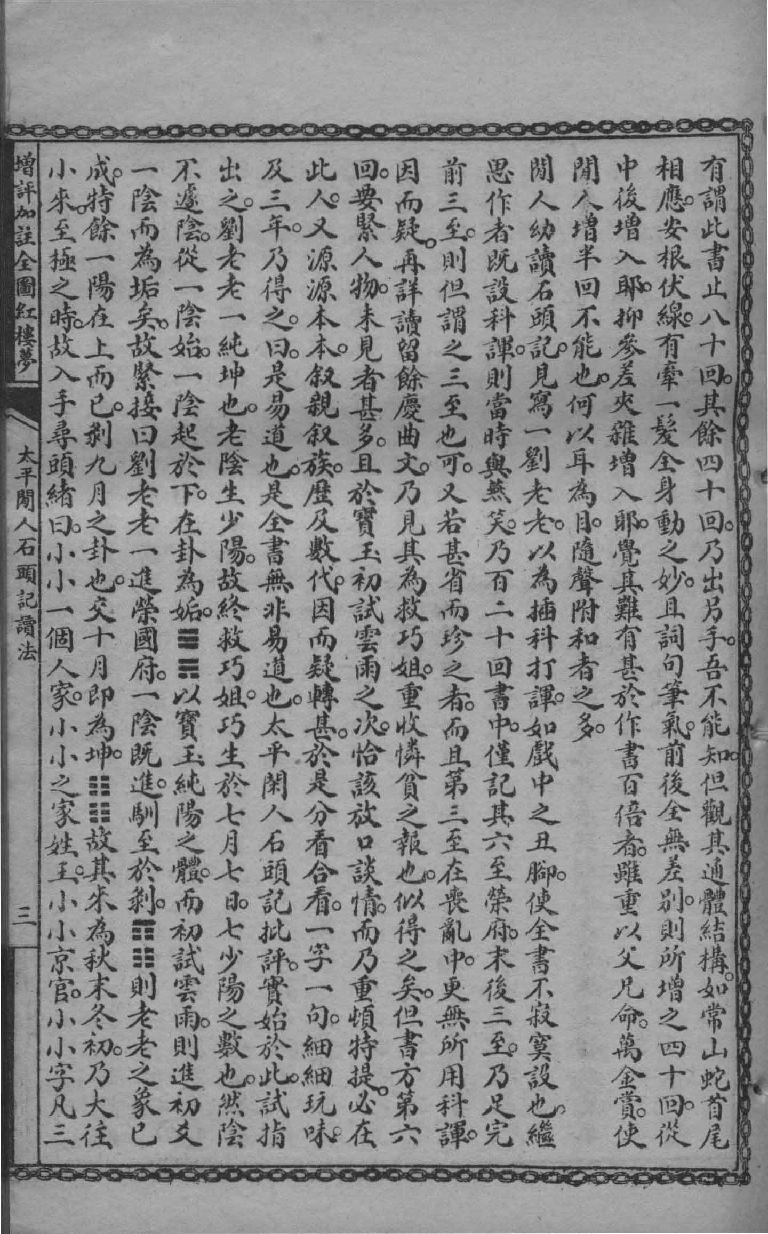 有謂此書止八十回。其餘四十回。乃出另手。吾不能知。但觀其通體結構。如常山蛇首尾
相應。安根伏線。有牽一髮全身動之妙。且詞句筆氣。前後全無差別。則所增之四十回。從
中後增入耶。抑參差夾雜增入耶。覺其難有甚於作書百倍者。雖重以父兄命。萬金賞。使
閒人增半回不能也。何以耳為目。隨聲附和者之多。
閒人幼讀石頭記。見寫一劉老老。以為插科打諢。如戲中之丑腳。使全書不寂寞設也。繼
思作者既設科諢。則當時與燕笑。乃百二十回書中。僅記其六至榮府。末後三至。乃足完
前三至。則但謂之三至也可。又若甚省而珍之者。而且第三至在喪亂中。更無所用科諢。
因而疑。再詳讀留餘慶曲文。乃見其為救巧姐。重收憐貧之報也。似得之矣。但書方第六
回。要緊人物。未見者甚多。且於寶玉初試雲雨之次。恰該放口談情。而乃重頓特提。必在
此人。又源源本本。叙親叙族。歷及數代。因而疑轉甚。於是分看合看。一字一句。細細玩味。
及三年乃得之。曰。是易道也。是全書無非易道也。太平閑人石頭記批評。實始於此。試指
出之。劉老老一純坤也。老陰生少陽。故終救巧姐。巧生於七月七日。七少陽之數也。然陰
不遽陰。從一陰始。一陰起於下。在卦為姤。☰☴以寶玉純陽之體。而初試雲雨。則進初爻
一陰而為垢矣。故緊接曰劉老老一進榮國府。一陰既進。馴至於剝。☶☷則老老之象已
成。特餘一陽在上而已。剝九月之卦也。交十月即為坤。☷☷故其來為秋末冬初。乃大往
小來。至極之時。故入手尋頭緒。曰。小小一個人家。小小之家姓王。小小京官。小小字凡三
增評加註全圖紅樓夢
太平閒人石頭記讀法
三